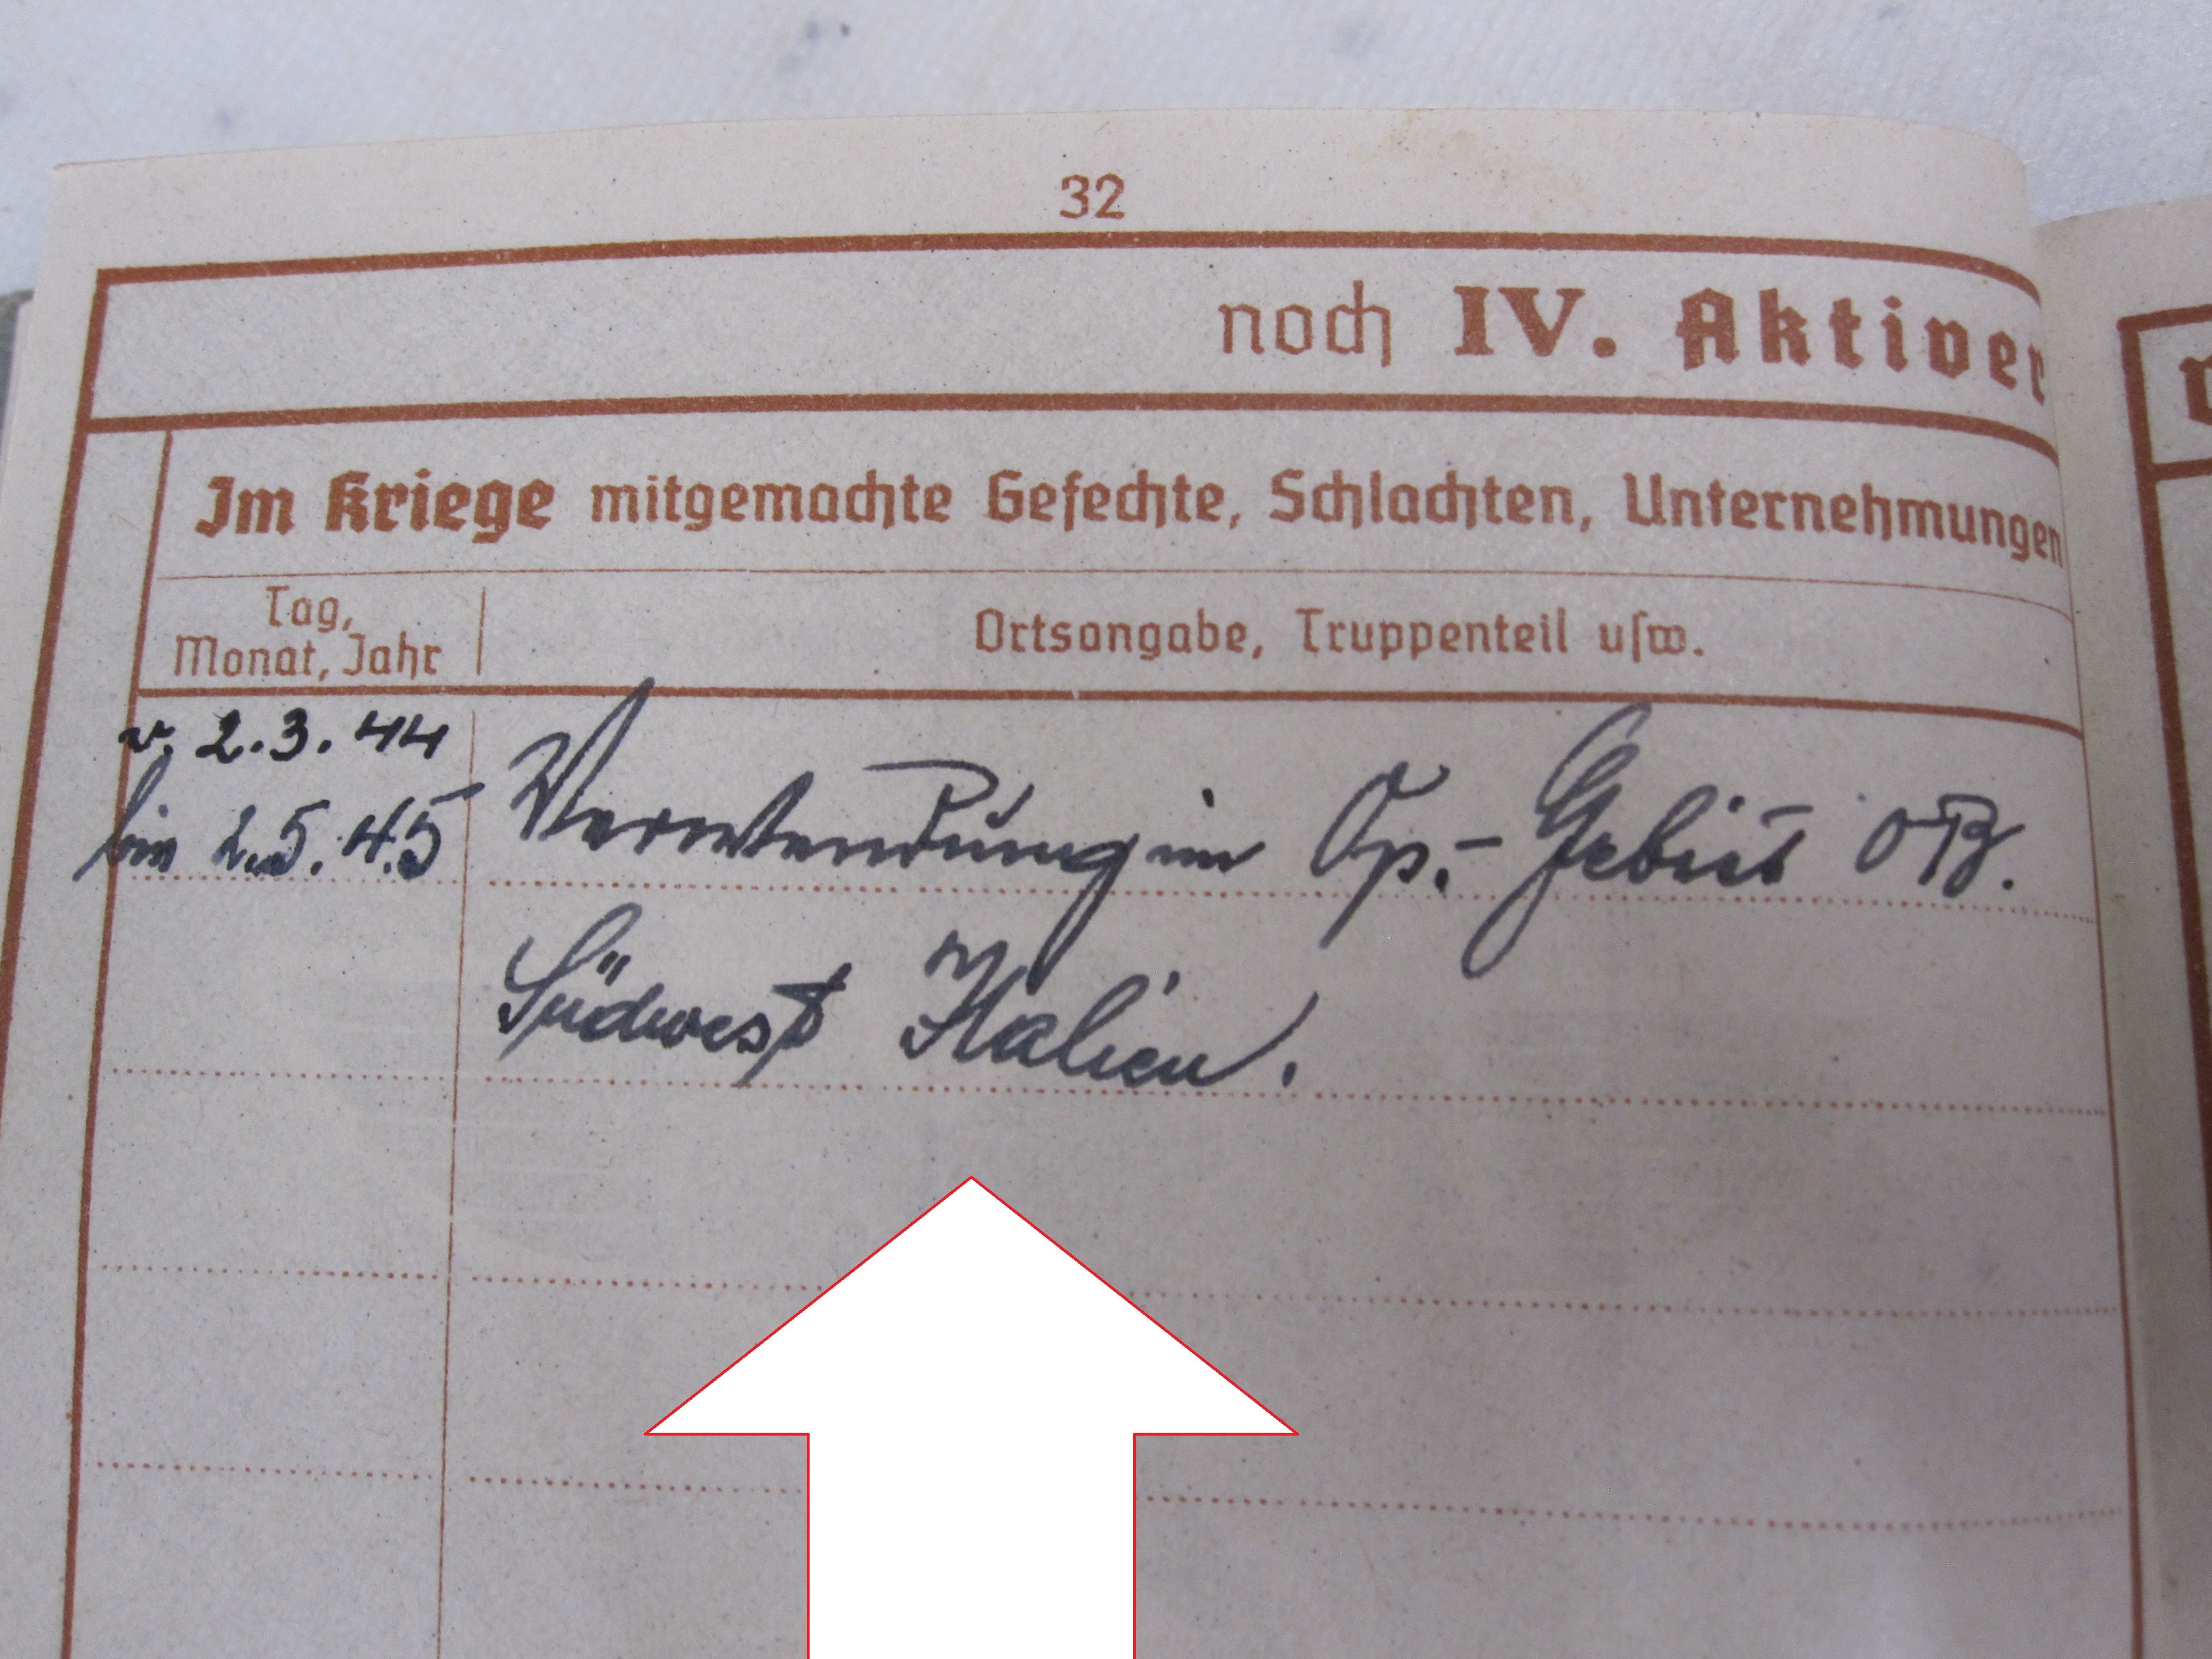 32
noch IV. Aktiver
Im Kriege mitgemachte Gefechte, Schlachten, Unternehmungen
Tag,
Monat, Jahr
Ortsangabe, Truppenteil usw.
v. 2.3.44
bis 2.5.45
Verwendung im Op.-Gebiet OB.
Südwest Italien.